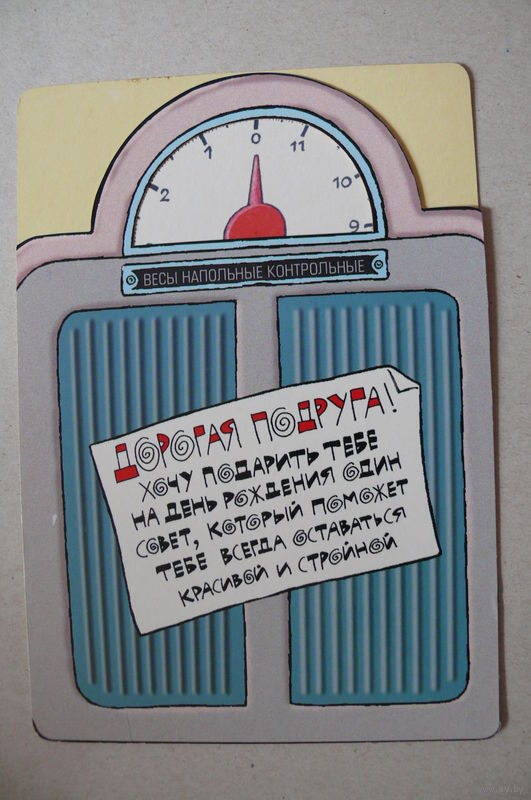 2 1 0 11 10 9
ВЕСЫ НАПОЛЬНЫЕ КОНТРОЛЬНЫЕ
ДОРОГАЯ ПОДРУГА!
ХОЧУ ПОДАРИТЬ ТЕБЕ
НА ДЕНЬ РОЖДЕНИЯ ОДИН
СОВЕТ, КОТОРЫЙ ПОМОЖЕТ
ТЕБЕ ВСЕГДА ОСТАВАТЬСЯ
КРАСИВОЙ И СТРОЙНОЙ